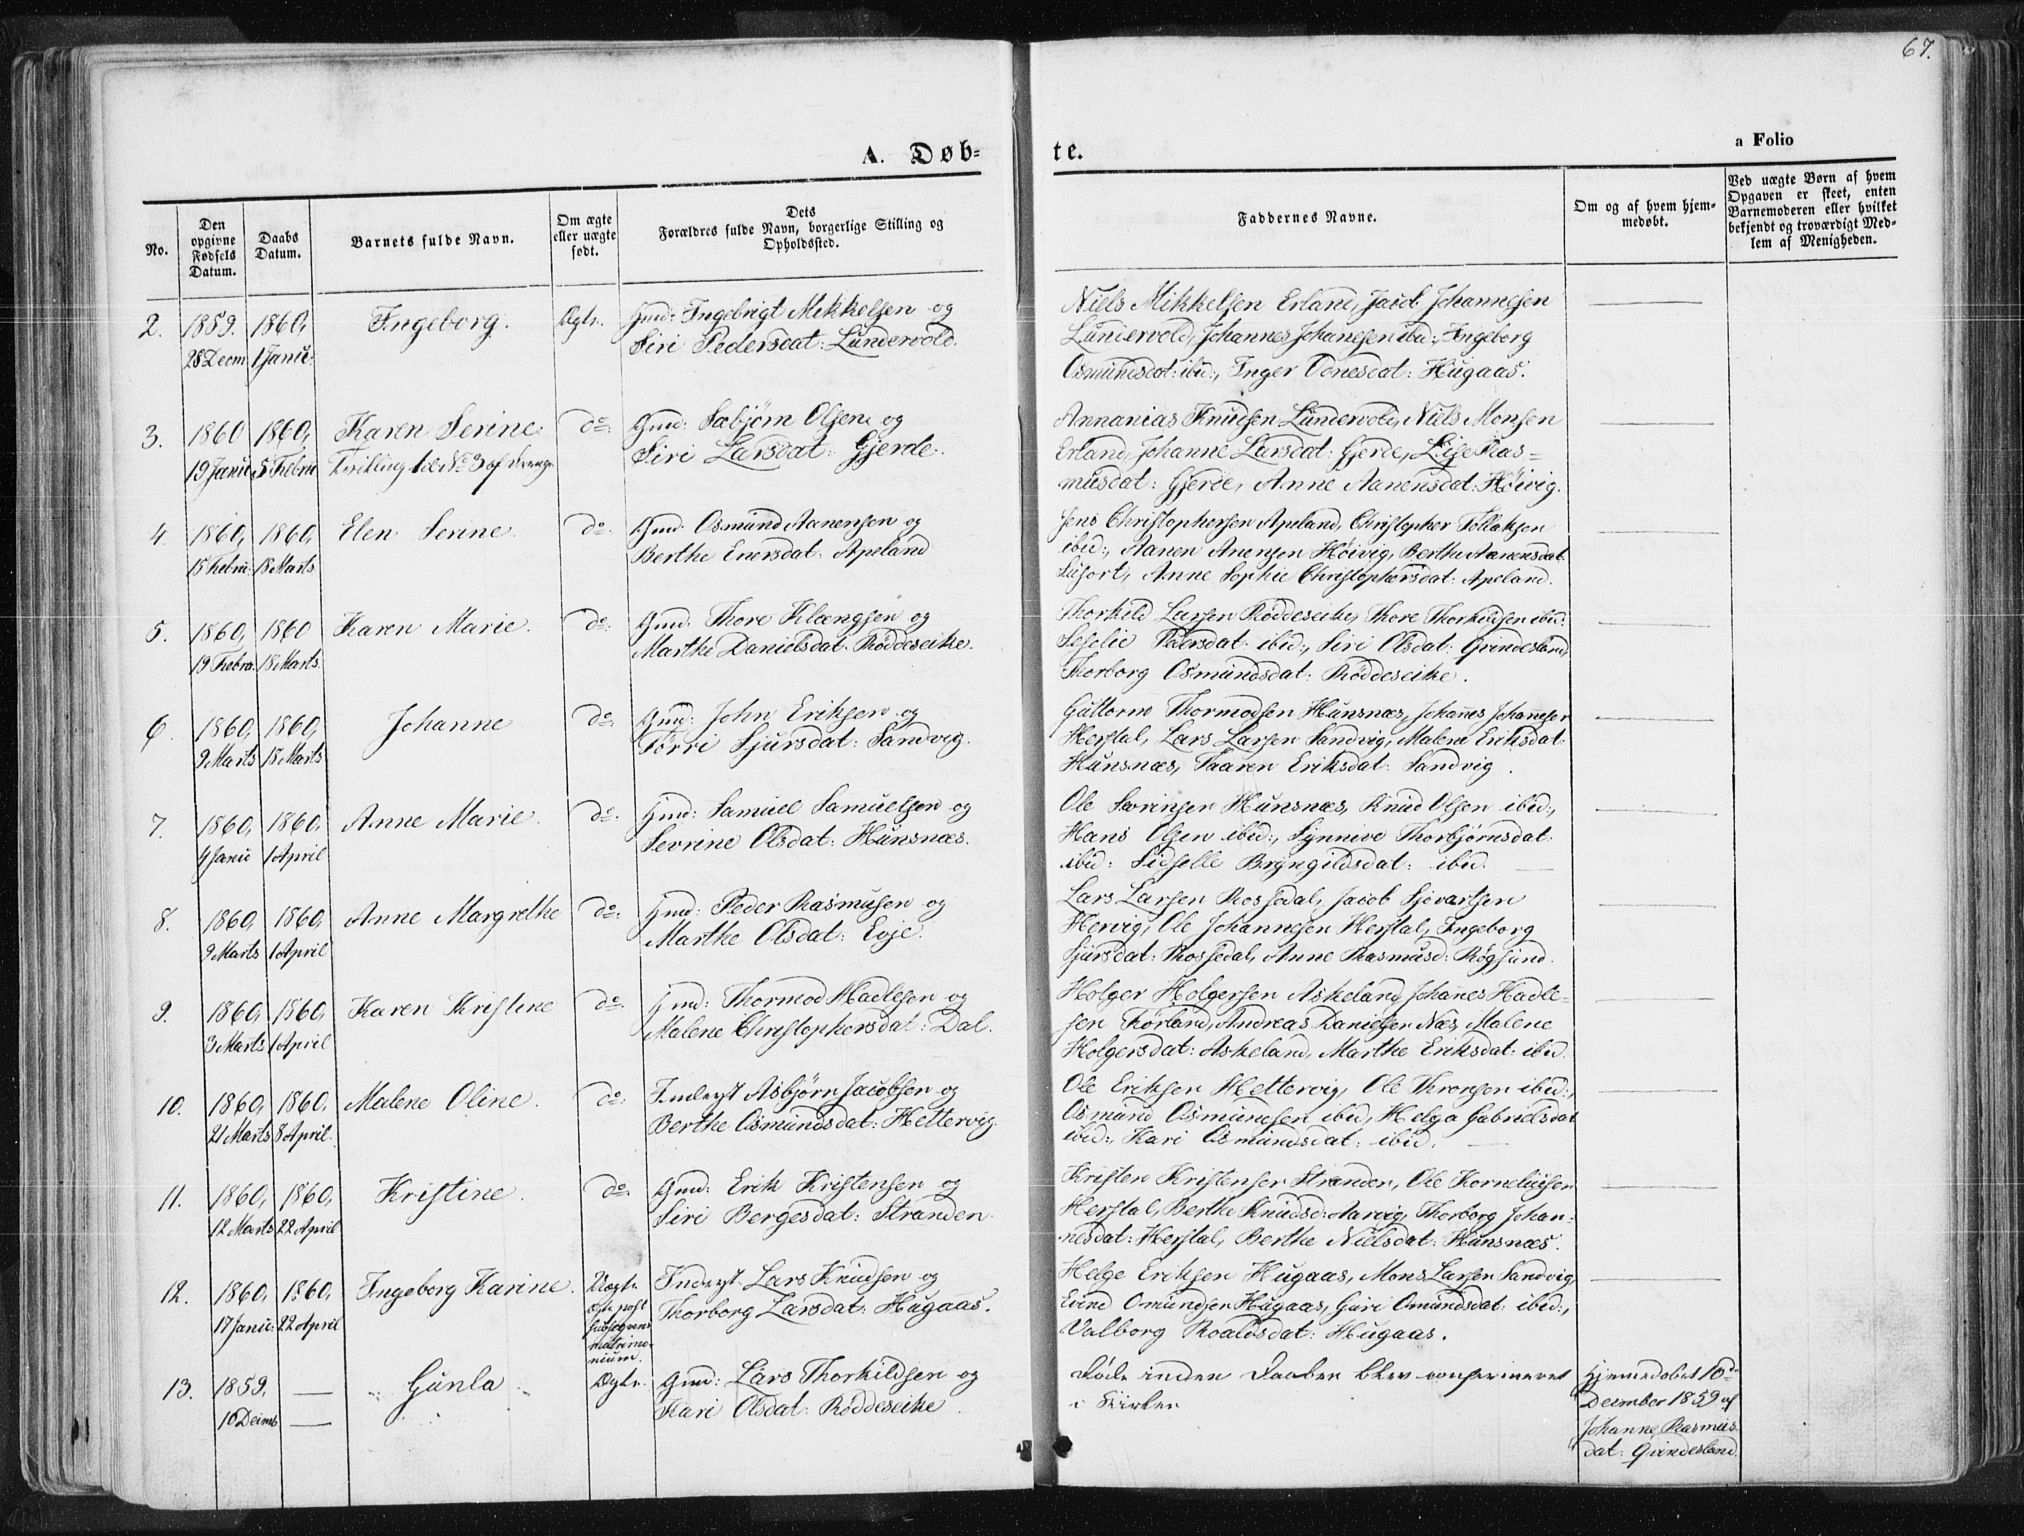 67.
A. Døb-
te.
a Folio
No.
Den opgivne Fødsels Datum.
Daabs Datum.
Barnets fulde Navn.
Om ægte eller uægte født.
Dets Forældres fulde Navn, borgerlige Stilling og Opholdssted.
Faddernes Navne.
Om og af hvem hjemmedøbt.
Ved uægte Børn af hvem Opgaven er skeet, enten Barnemoderen eller hvilket bekjendt og troværdigt Medlem af Menigheden.
2. 1859. 1860, Ingeborg. Ægte. Gmd: Ingebrigt Mikkelsen og
28 Decm 1 Janu: Siri Pedersdat: Lundervold.
Niels Mikkelsen Erland, Jacob Johannesen
Lundervold, Johannes Johanesen ibid:, Ingeborg
Osmundsdat: ibid:, Inger Odnesdat: Hugaas.
3. 1860 1860, Karen Serine. do: Gmd: Sæbjørn Olsen og
19 Janu 5 Febru Tvilling til No 3 af Drenge Siri Larsdat: Gjerde.
Annanias Knudsen Lundervold, Niels Monsen
Erland, Johanne Larsdat: Gjerde, Lise Ras=
musdat: Gjerde, Anne Aanensdat: Høivig.
4. 1860, 1860, Elen Serine. do. Gmd: Osmund Aanensen og
15 Febru: 18 Marts Berthe Enersdat: Apeland
Jens Christophersen Apeland, Christopher Tollaksen
ibid:, Aanen Anensen Høivig, Berthe Aanensdat:
Anne Sophie Christophersdat: Apeland.
5. 1860, 1860 Karen Marie. do: Gmd: Thore Klængsen og
19 Febru. 18 Marts Marthe Danielsdat: Røddeseike.
Thorkild Larsen Røddeseike, Thore Thorkildsen ibid:
Sefelie ibid:, Siri Olsdat: Grindesland,
Thorborg Osmundsdat: Røddeseike.
6. 1860, 1860, Johanne do: Gmd: John Eriksen og
9 Marts 18 Marts Torri Sjursdat: Sandvig.
Guttorm Thormodsen Hunsnæs, Johanes Johannesen
Herstal, Lars Larsen Sandvig, Malene Eriksdat:
Hunsnæs, Saaren Eriksdat: Sandvig.
7. 1860, 1860, Anne Marie. do: Gmd: Samuel Samuelsen og
4 Janu 1 April Sevrine Olsdat: Hunsnæs.
Ole Sørinsen Hunsnæs, Knud Olsen ibid:,
Hans Olsen ibid:, Synnive Thorbjørnsdat:
ibid: Sidselle Bryngildsdat: ibid.
8. 1860, 1860, Anne Margrethe do: Gmd: Peder Rasmusen og
9 Marts 1 April Marthe Olsdat: Evje.
Lars Larsen Rossedal, Jacob Sjovartsen
Hervig, Ole Johannesen Herstal, Ingeborg
Sjursdat: Rossedal, Anne Rasmusd: Røgsund.
9. 1860, 1860, Karen Kristine do: Gmd: Thormod Hadlesen og
3 Marts 1 April Malene Christophersdat: Dal.
Holger Holgersen Askeland, Johanes Hadle=
sen Tørland, Andreas Danielsen Næs, Malene
Holgersdat: Askeland, Marthe Eriksdat: ibid.
10. 1860, 1860, Malene Oline. do: Inderst Asbjørn Jacobsen og
21 Marts 8 April. Berthe Osmundsdat: Hettervig.
Ole Eriksen Hettervig, Ole Thronsen ibid:,
Osmund Osmundsen ibid, Helga Gabrielsdat
ibid:, Kari Osmundsdat: ibid.
11. 1860, 1860, Kristine. do. Gmd: Erik Kristensen og
12 Marts 22 April Siri Bergesdat: Stranden.
Kristen Kristensen Stranden, Ole Korneliusen
Herstal, Berthe Knudsd: Aarvig, Thorborg Johan-
nesdat: Herstal, Berthe Nielsdat: Hunsnæs.
12. 1860, 1860, Ingeborg Karine. Uægte Inderst Lars Knudsen og
17 Janu: 22 April ægte post subseqvens matrimonium. Thorborg Larsdat: Hugaas.
Helge Eriksen Hugaas, Mons Larsen Sandvig,
Evind Omundsen Hugaas, Guri Omundsdat: ibid:,
Valborg Roaldsdat: Hugaas.
13. 1859. Gunla Ægte. Gmd: Lars Thorkildsen og
10 Decmb Kari Olsdat: Røddeseike
Døde inden Daaben blev confirmeret
i Kirken
Hjemedøbt 10de
December 1859 af
Johanne Rasmus
dat: Grindesland.